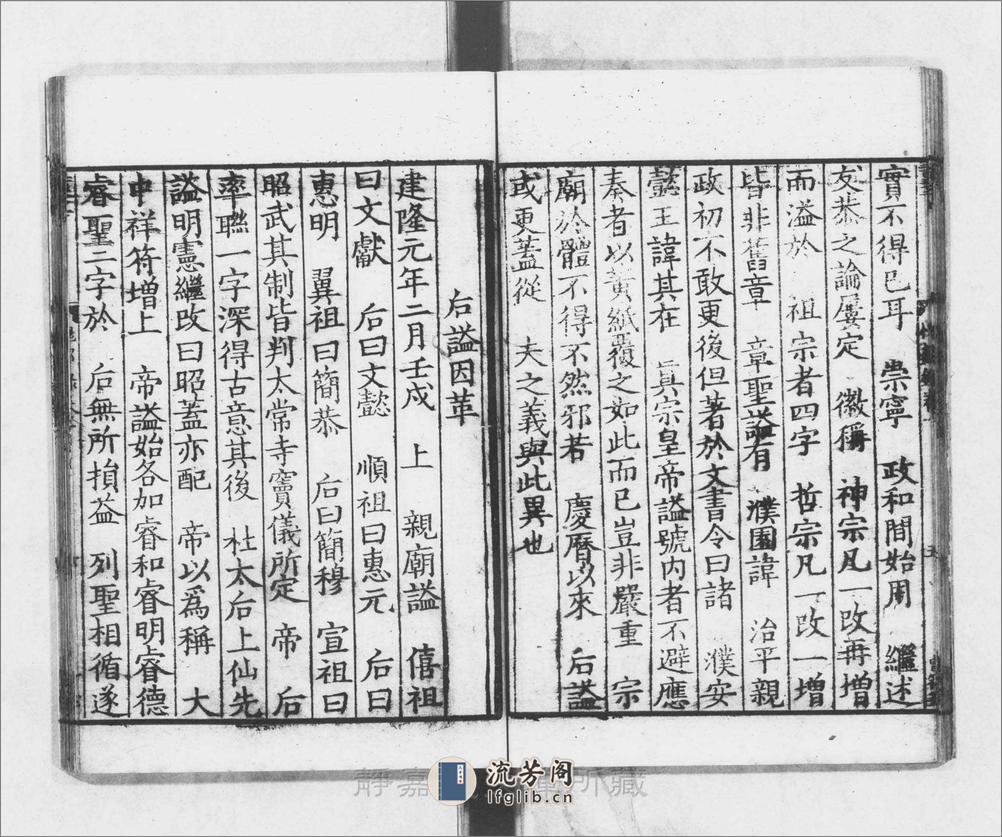 實不得已耳　崇寧　政和間始用　繼述
友恭之論屢定　徽稱　神宗凡一改再增
而溢於　祖宗者四字　哲宗凡一改一增
皆非舊章　章聖謚有　濮園諱　治平親
政初不敢更後但著於文書令曰諸　濮安
懿王諱其在　真宗皇帝謚號内者不避應
奏者以黄紙覆之如此而已豈非嚴重　宗
廟於體不得不然邪若　慶曆以來　后謚
或更蓋從　夫之義與此異也
后謚因革
建隆元年二月壬戍　上　親廟謚　僖祖
曰文獻　后曰文懿　順祖曰惠元　后曰
惠明　翼祖曰簡恭　后曰簡穆　宣祖曰
昭武其制皆判太常寺竇儀所定　帝　后
率聮一字深得古意其後　杜太后上仙先
謚明憲繼改曰昭蓋亦配　帝以爲稱　大
中祥符增上　帝謚始各加睿和睿明睿德
睿聖二字於　后無所損益　列聖相循遂
静嘉
所藏
流芳阁
lfglib.cn